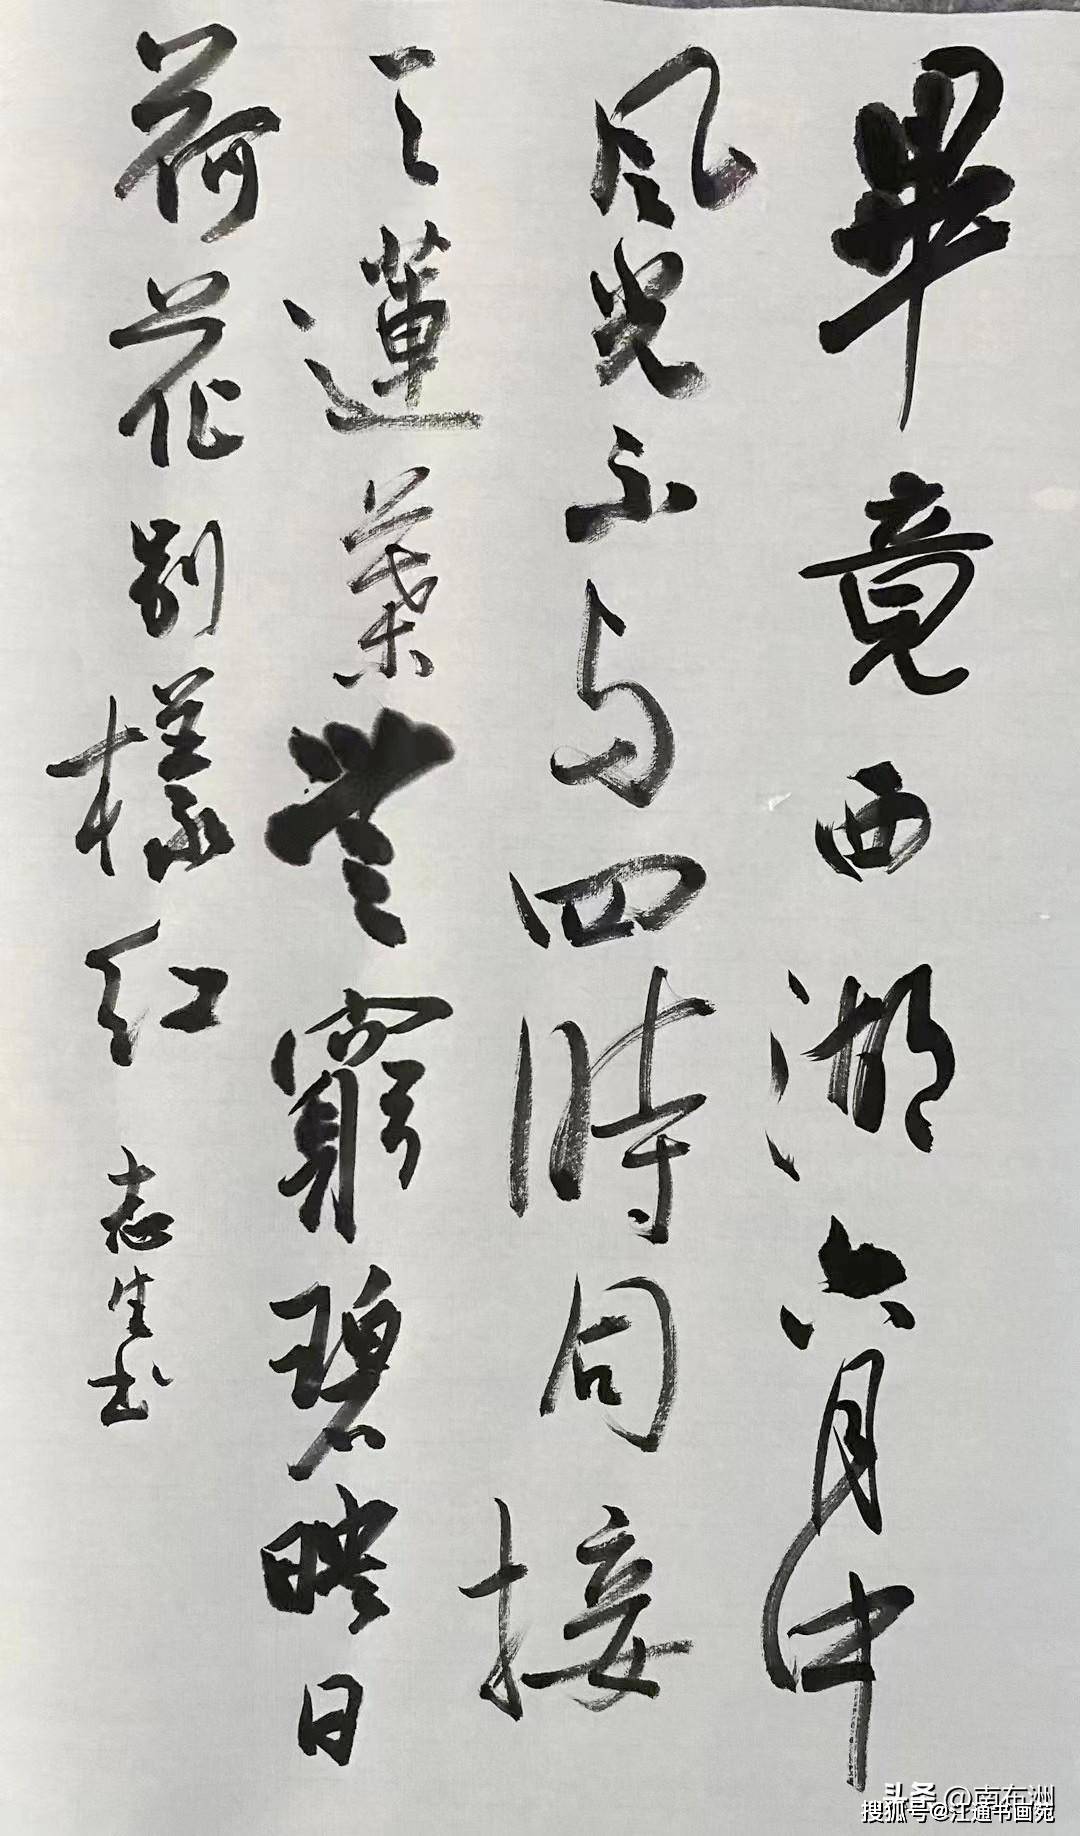 畢竟西湖六月中
风光不与四時同接
天蓮葉無窮碧映日
荷花别樣红
志生书
头条 @南布洲
搜狐号@江通书画苑